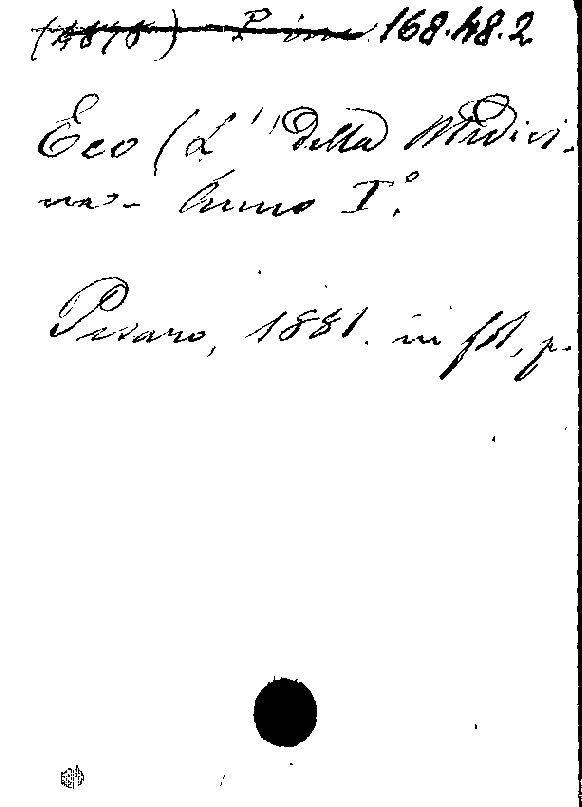 168.48.2
Eco (L' della Medici-
na - Anno I°.
Pesaro, 1881. in fol, p.